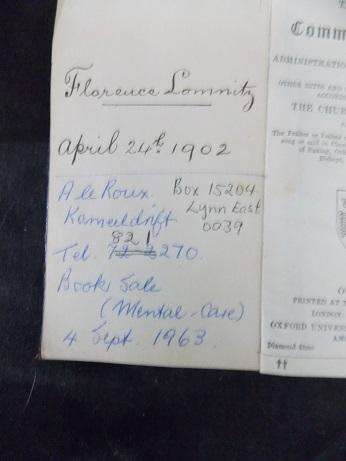 Florence Lomnitz
April 24th 1902
A le Roux.
Kameeldrift
Box 15204
Lynn East
0039
821
Tel. 72-2270.
Book Sale
(Mental-Care)
4 Sept. 1963.
Comm
ADMINISTRATION
OTHER RITES AND
ACCORD
THE CHUR
The Psalter or Psalms
sung or said in Churc
of Making, Ord
Bishops,
O
PRINTED AT T
LONDON
OXFORD UNIVER
AM
Diamond 6mo
††